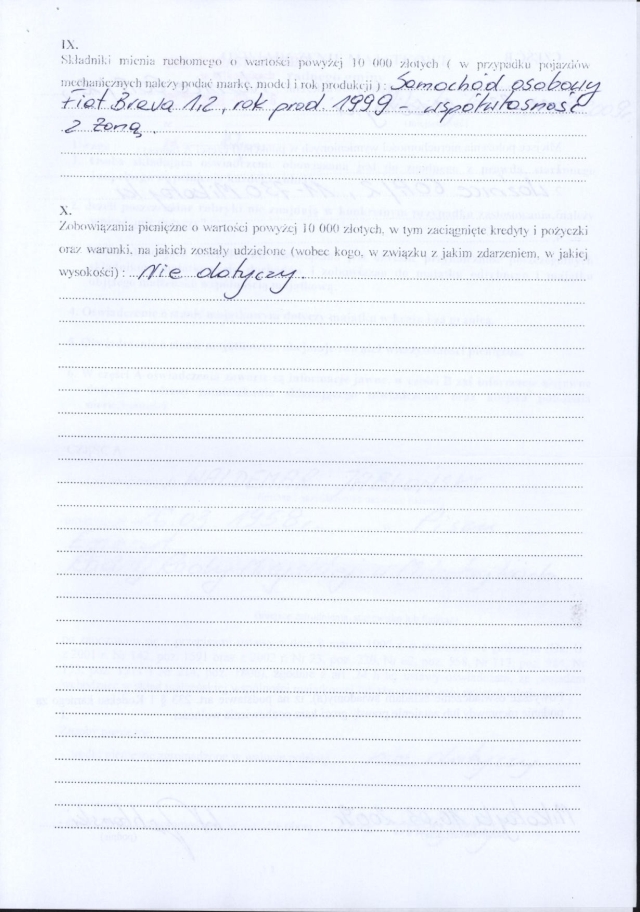 IX.
Składniki mienia ruchomego o wartości powyżej 10 000 złotych ( w przypadku pojazdów
mechanicznych należy podać markę, model i rok produkcji ) : Samochód osobowy
Fiat Brava 1.2, rok prod 1999 - współwłasność
z żoną.
X.
Zobowiązania pieniężne o wartości powyżej 10 000 złotych, w tym zaciągnięte kredyty i pożyczki
oraz warunki, na jakich zostały udzielone (wobec kogo, w związku z jakim zdarzeniem, w jakiej
wysokości) : Nie dotyczy.